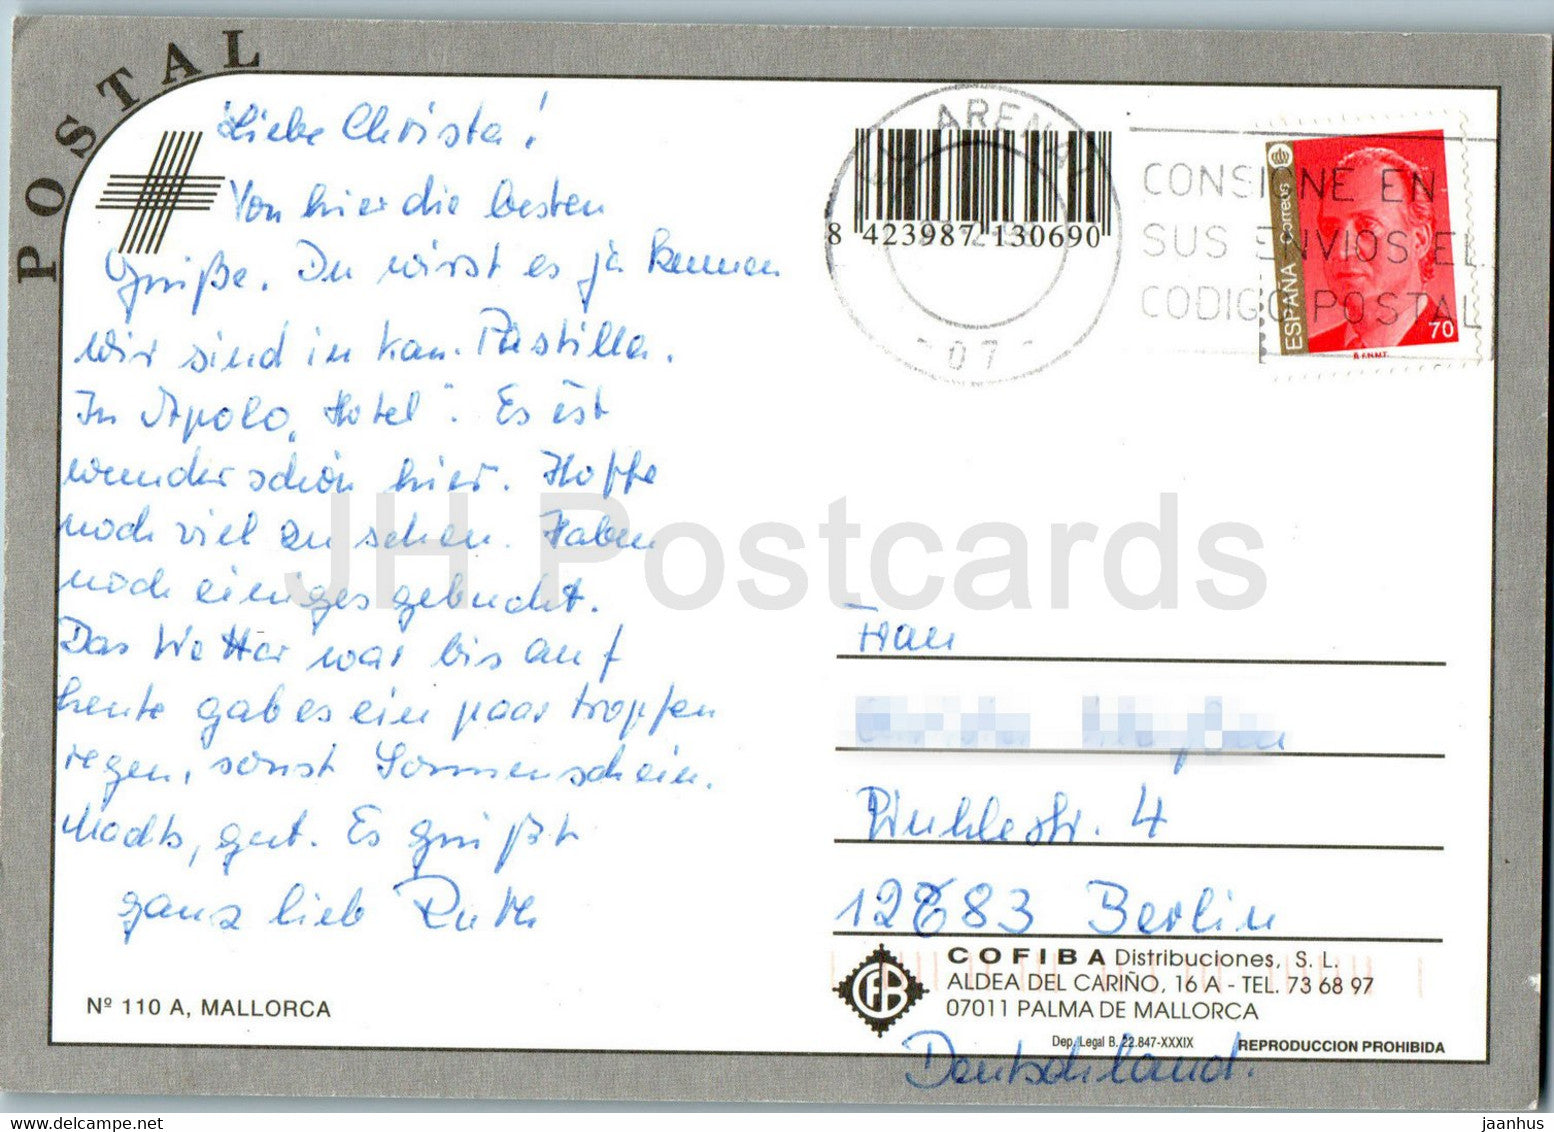 POSTAL
Liebe Christa!
Von hier die besten
Grüße. Du wirst es ja kennen
wir sind in Kan. Pastilla.
In Apolo „Hotel". Es ist
wunderschön hier. Hoffe
noch viel zu sehen. Haben
noch einiges gebucht.
Das Wetter war bis auf
heute gab es ein paar tropfen
regen, sonst Sonnenschein.
Machts, gut. Es grüßt
ganz lieb Ruth
Nº 110 A, MALLORCA
8 423987 130690
ARENAL
07
CONSIGNE EN
SUS ENVIOS EL
CODIGO POSTAL
ESPAÑA Correos
70
R.F.N.M.T.
JH Postcards
Frau
4
12683 Berlin
COFIBA Distribuciones, S. L.
ALDEA DEL CARIÑO, 16 A - TEL. 73 68 97
07011 PALMA DE MALLORCA
CFB
Dep. Legal B. 22.847-XXXIX
REPRODUCCION PROHIBIDA
Deutschland.
jaanhus